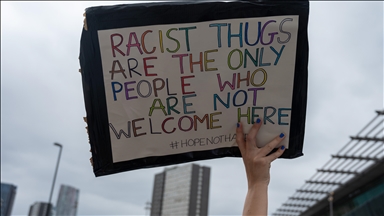 RACIST THUGS
ARE THE ONLY
PEOPLE WHO
ARE NOT
WELCOME HERE
#HOPENOTHA